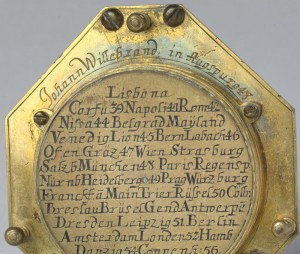 Johann Willebrand, in Augspurg 48
Lisbona
Corfu 39 Napoli 41 Rom 42
Nissa 44 Belgrad Mayland
Venedig Lion 45 Bern Labach 46
Ofen Gräz 47 Wien Strasburg
Salzb München 48 Paris Regensp
Nürnb Heidelberg 49 Prag Würzburg
Franckf a Main Trier Rüsel 50 Cölln
Breslau Brüsel Gend Antwerpe
Dresden Leipzig 51 Berlin
Amsterdam Londen 52 Hamb
Danzig 54 Coppenh 56